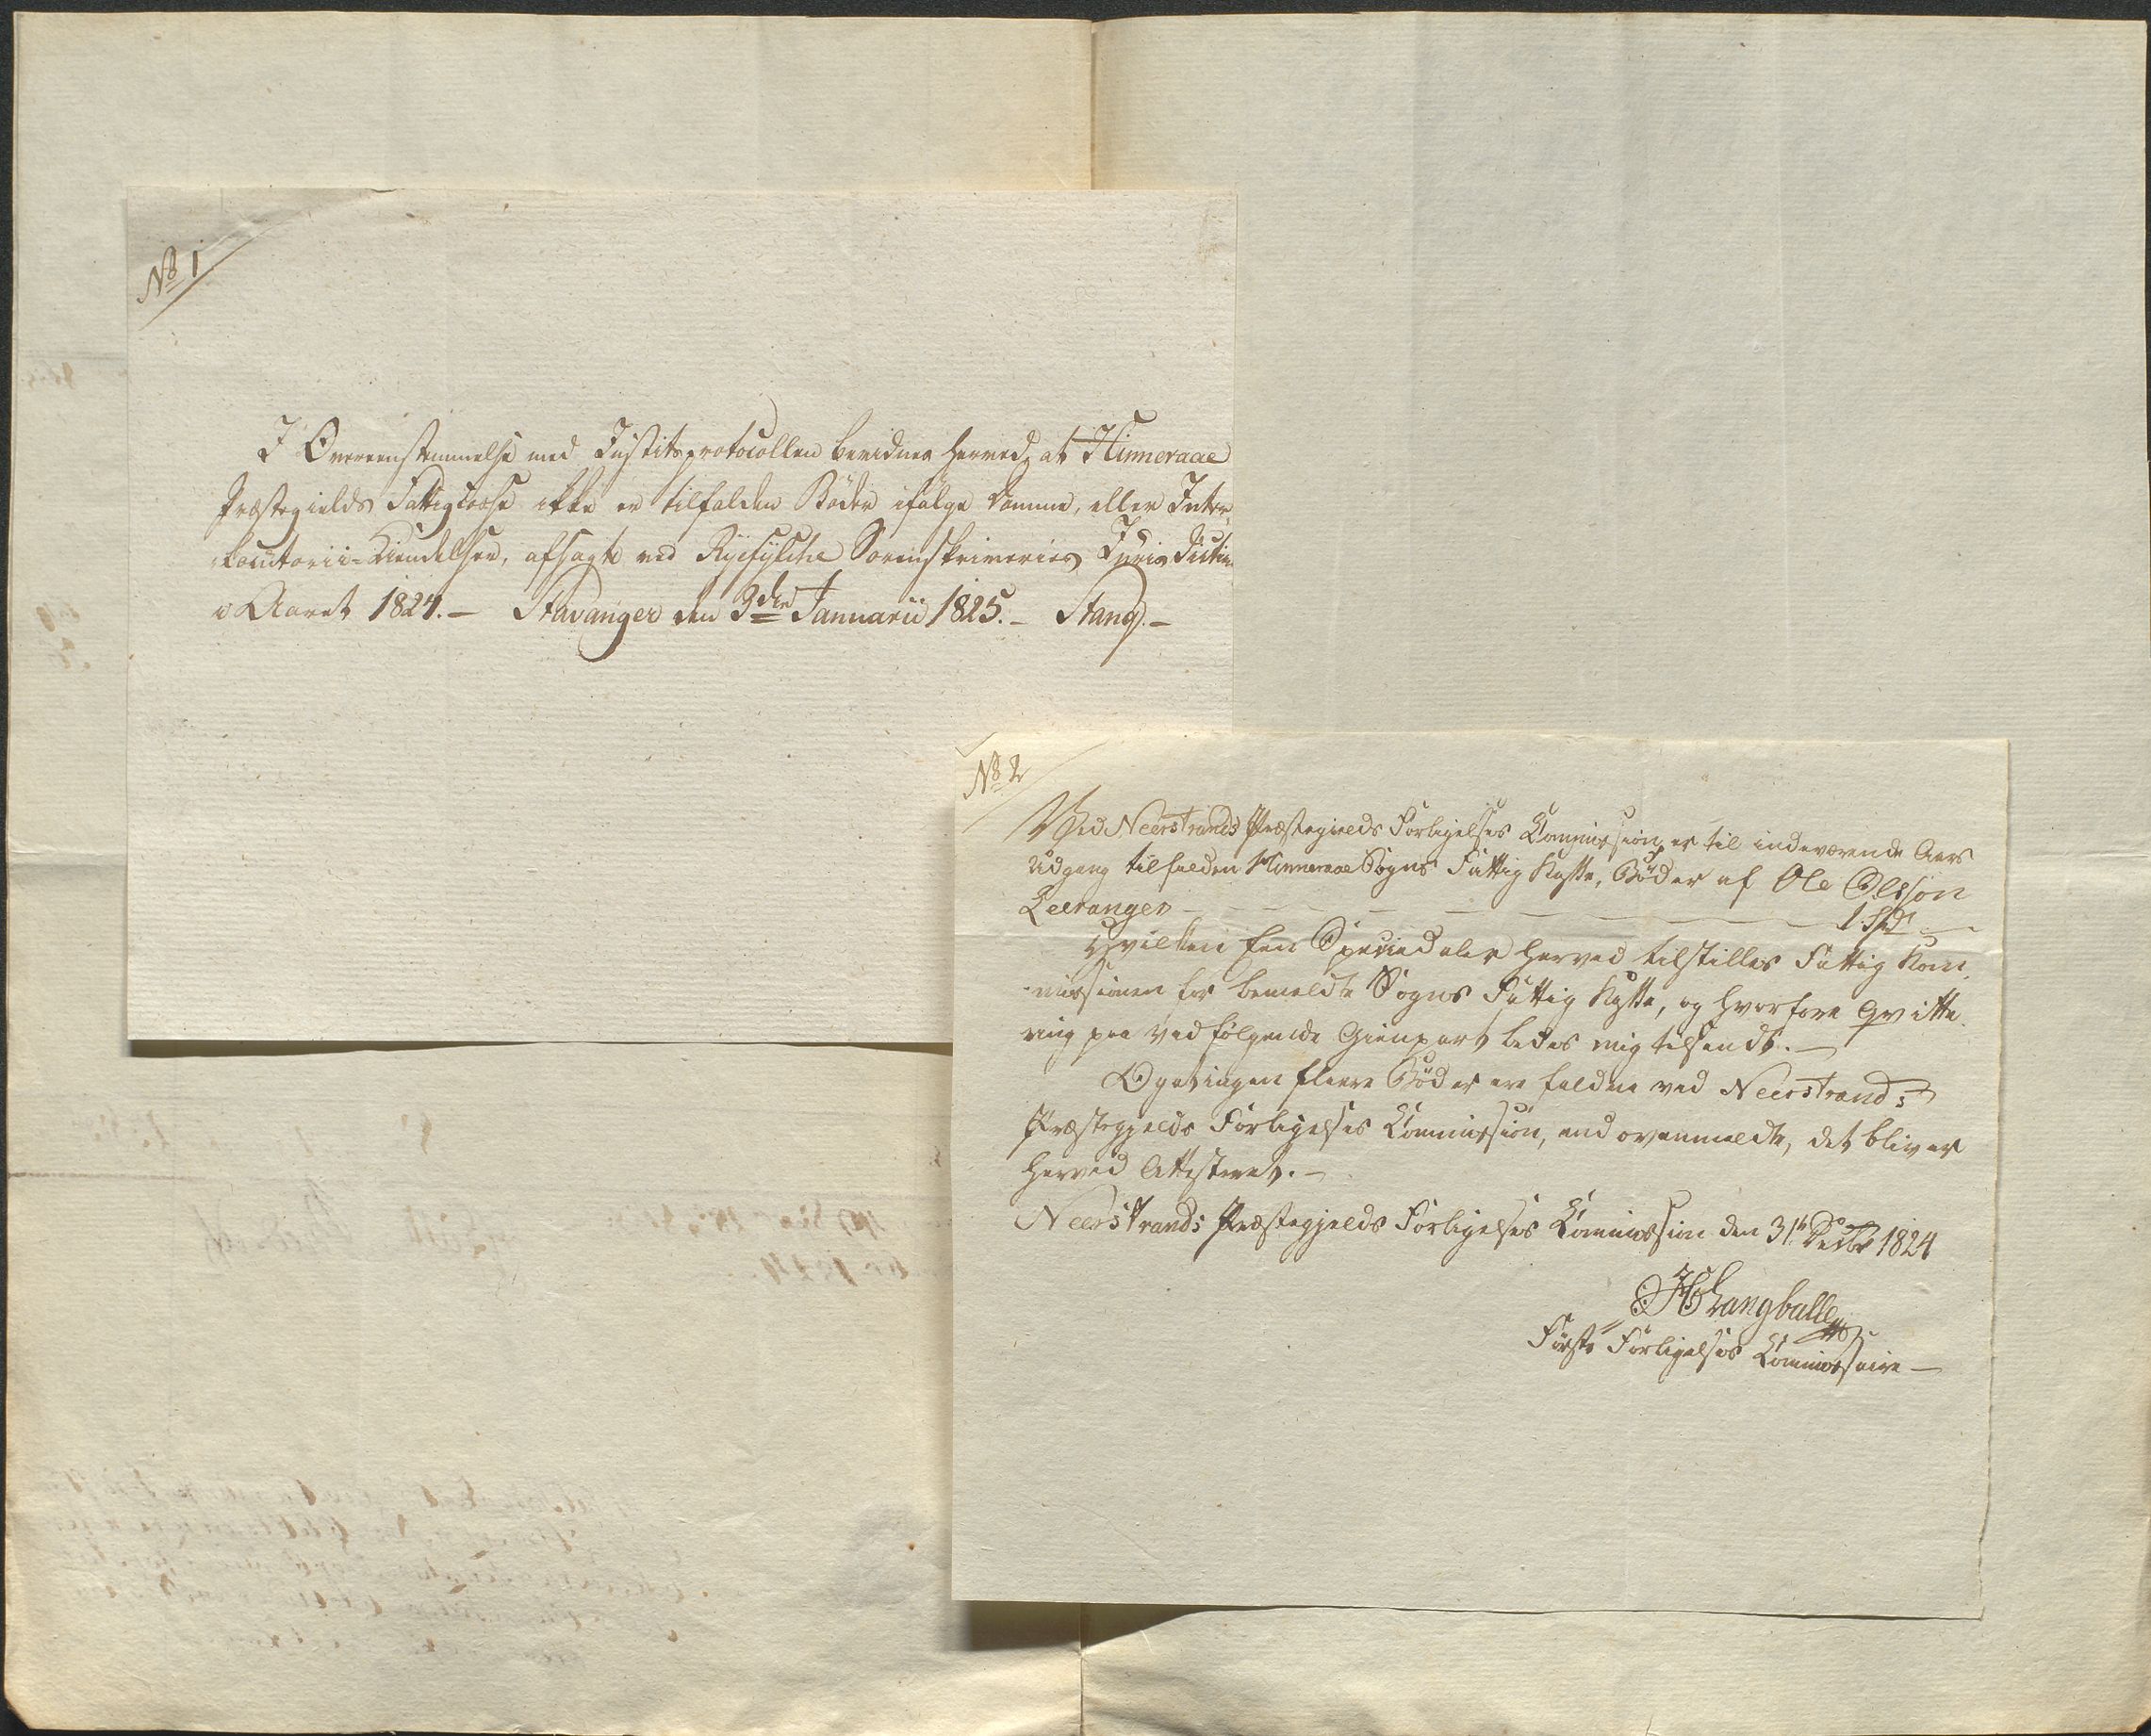 No 1
I Overeenstemmelse med Justitsprotocollen bevidnes herved, at Hinneraae
Præstegields Fattigcasse ikke er tilfalden Bøder ifølge Domme, eller Inter-
locutorii-Kiendelser, afsagte ved Ryefylche Sorenskriveries Juris Diction
i Aaret 1824.- Stavanger den 3die Januarii 1825.- Stang.-
No 2
Ved Neerstrands Præstegields Forligelses Commission, er til indeværende Aars
Udgang tilfalden Hinneraae Sogns Fattig Kasse, Bøder af Ole Olsøn
Leeranger - - - - - - 1 Spd -
Hvilken Een Speciedaler herved tilstilles Fattig Kom-
missionen for bemeldte Sogns Fattig Kasse, og hvorfore Qvitte-
ring paa vedfølgende Gienpart bedes mig tilsendt.-
Og at ingen fleere Bøder ere faldne ved Neerstrands
Præstegjelds Forligelses Commission, end ovenmeldte, det bliver
herved Attesteret.-
Neerstrands Præstegjelds Forligelses Commission den 31te Decbr 1824
Langballe
Første Forligelses Commissaire-